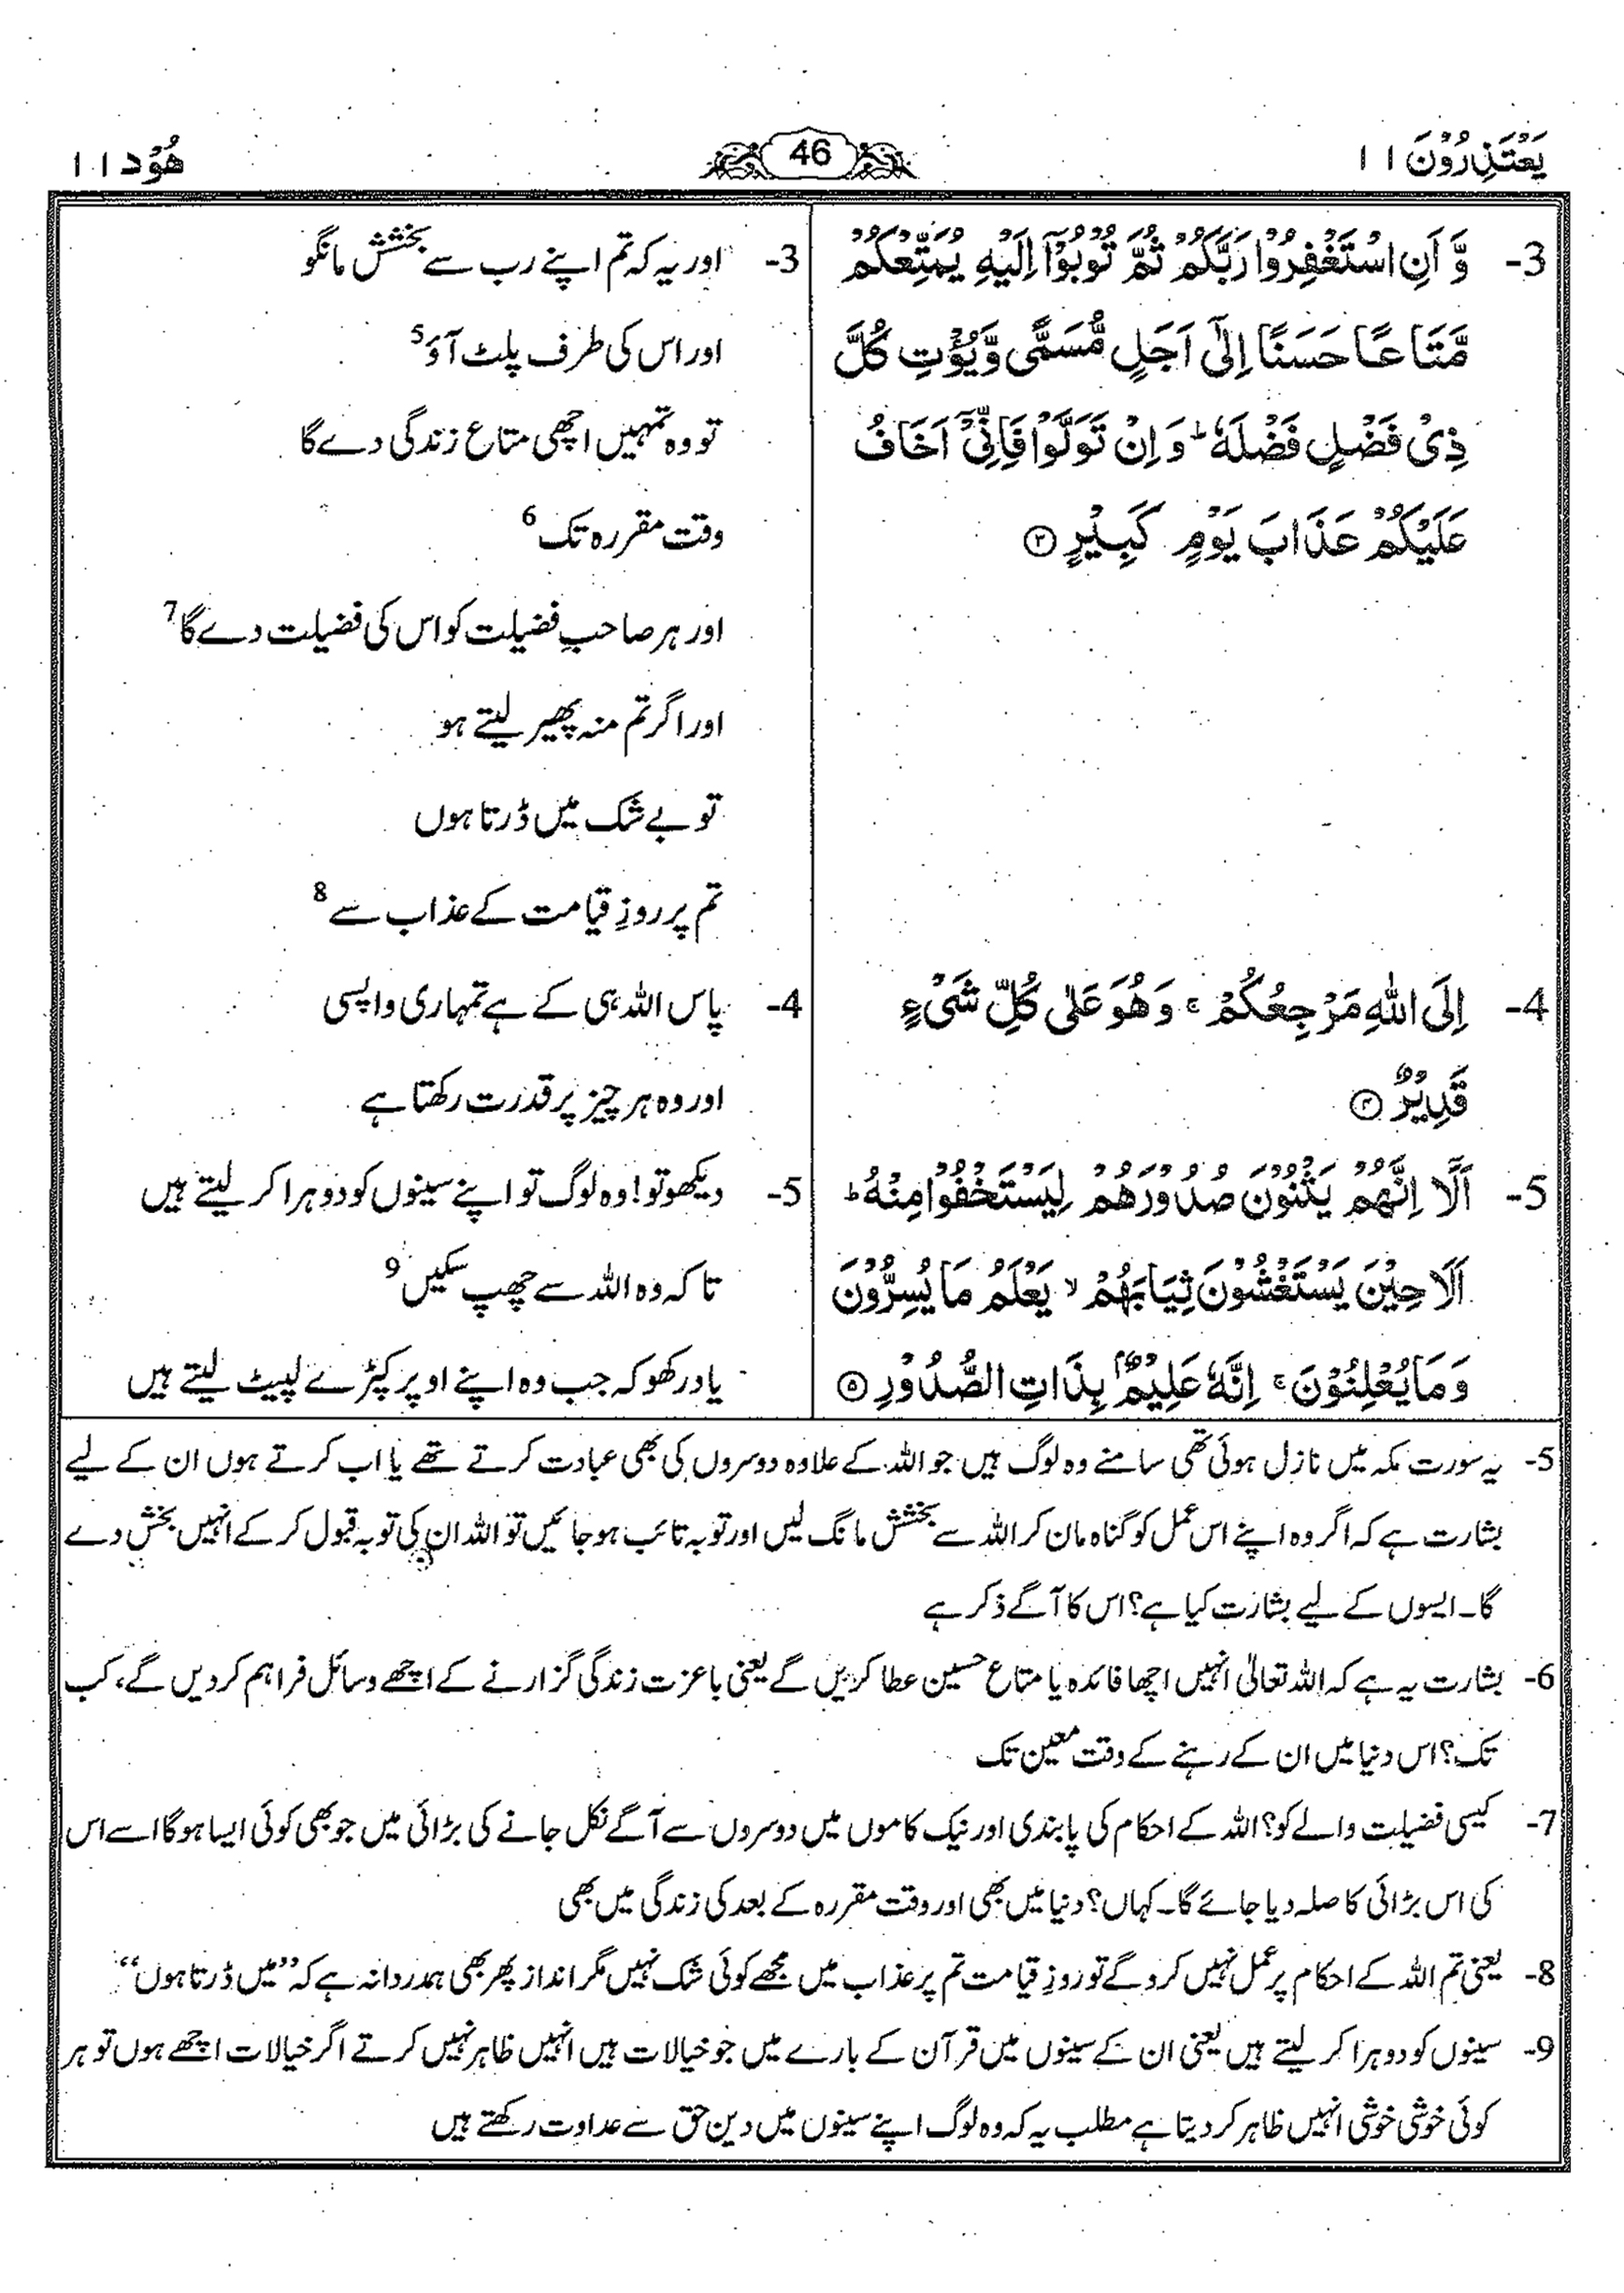 يَعْتَذِرُوْنَ ۱۱
46
هُوْد ۱۱
3- وَّ اَنِ اسْتَغْفِرُوْا رَبَّكُمْ ثُمَّ تُوْبُوْٓا اِلَيْهِ يُمَتِّعْكُمْ
مَّتَاعًا حَسَنًا اِلٰٓى اَجَلٍ مُّسَمًّى وَّيُؤْتِ كُلَّ
ذِىْ فَضْلٍ فَضْلَهٗ ؕ وَ اِنْ تَوَلَّوْا فَاِنِّىْٓ اَخَافُ
عَلَيْكُمْ عَذَابَ يَوْمٍ كَبِيْرٍ ۳
4- اِلَى اللّٰهِ مَرْجِعُكُمْ ۚ وَهُوَ عَلٰى كُلِّ شَىْءٍ
قَدِيْرٌ ۴
5- اَلَآ اِنَّهُمْ يَثْنُوْنَ صُدُوْرَهُمْ لِيَسْتَخْفُوْا مِنْهُ ؕ
اَلَا حِيْنَ يَسْتَغْشُوْنَ ثِيَابَهُمْ ۙ يَعْلَمُ مَا يُسِرُّوْنَ
وَمَا يُعْلِنُوْنَ ۚ اِنَّهٗ عَلِيْمٌۢ بِذَاتِ الصُّدُوْرِ ۵
3- اور یہ کہ تم اپنے رب سے بخشش مانگو
اور اس کی طرف پلٹ آؤ 5
تو وہ تمہیں اچھی متاع زندگی دے گا
وقت مقررہ تک 6
اور ہر صاحبِ فضیلت کو اس کی فضیلت دے گا 7
اور اگر تم منہ پھیر لیتے ہو
تو بے شک میں ڈرتا ہوں
تم پر روزِ قیامت کے عذاب سے 8
4- پاس اللہ ہی کے ہے تمہاری واپسی
اور وہ ہر چیز پر قدرت رکھتا ہے
5- دیکھو تو! وہ لوگ تو اپنے سینوں کو دوہرا کر لیتے ہیں
تا کہ وہ اللہ سے چھپ سکیں 9
یاد رکھو کہ جب وہ اپنے اوپر کپڑے لپیٹ لیتے ہیں
5- یہ سورت مکہ میں نازل ہوئی تھی سامنے وہ لوگ ہیں جو اللہ کے علاوہ دوسروں کی بھی عبادت کرتے تھے یا اب کرتے ہوں ان کے لیے
بشارت ہے کہ اگر وہ اپنے اس عمل کو گناہ مان کر اللہ سے بخشش مانگ لیں اور توبہ تائب ہو جائیں تو اللہ ان کی توبہ قبول کر کے انہیں بخش دے
گا۔ ایسوں کے لیے بشارت کیا ہے؟ اس کا آگے ذکر ہے
6- بشارت یہ ہے کہ اللہ تعالیٰ انہیں اچھا فائدہ یا متاع حسین عطا کریں گے یعنی باعزت زندگی گزارنے کے اچھے وسائل فراہم کر دیں گے، کب
تک؟ اس دنیا میں ان کے رہنے کے وقت معین تک
7- کیسی فضیلت والے کو؟ اللہ کے احکام کی پابندی اور نیک کاموں میں دوسروں سے آگے نکل جانے کی بڑائی میں جو بھی کوئی ایسا ہوگا اسے اس
کی اس بڑائی کا صلہ دیا جائے گا۔ کہاں؟ دنیا میں بھی اور وقت مقررہ کے بعد کی زندگی میں بھی
8- یعنی تم اللہ کے احکام پر عمل نہیں کرو گے تو روزِ قیامت تم پر عذاب میں مجھے کوئی شک نہیں مگر انداز پھر بھی ہمدردانہ ہے کہ ”میں ڈرتا ہوں“
9- سینوں کو دوہرا کر لیتے ہیں یعنی ان کے سینوں میں قرآن کے بارے میں جو خیالات ہیں انہیں ظاہر نہیں کرتے اگر خیالات اچھے ہوں تو ہر
کوئی خوشی خوشی انہیں ظاہر کر دیتا ہے مطلب یہ کہ وہ لوگ اپنے سینوں میں دین حق سے عداوت رکھتے ہیں